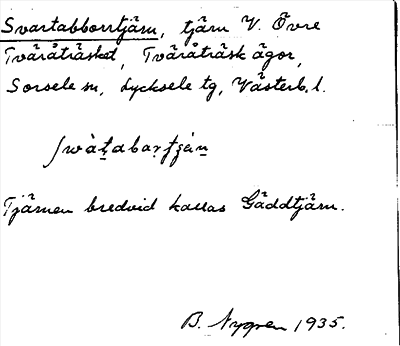 Svartabborrtjärn, tjärn V. Övre
Tväråträsket, Tväråträsk ägor,
Sorsele sn, Lycksele tg, Västerb. l.
Tjärnen bredvid kallas Gäddtjärn.
B. Nygren 1935.